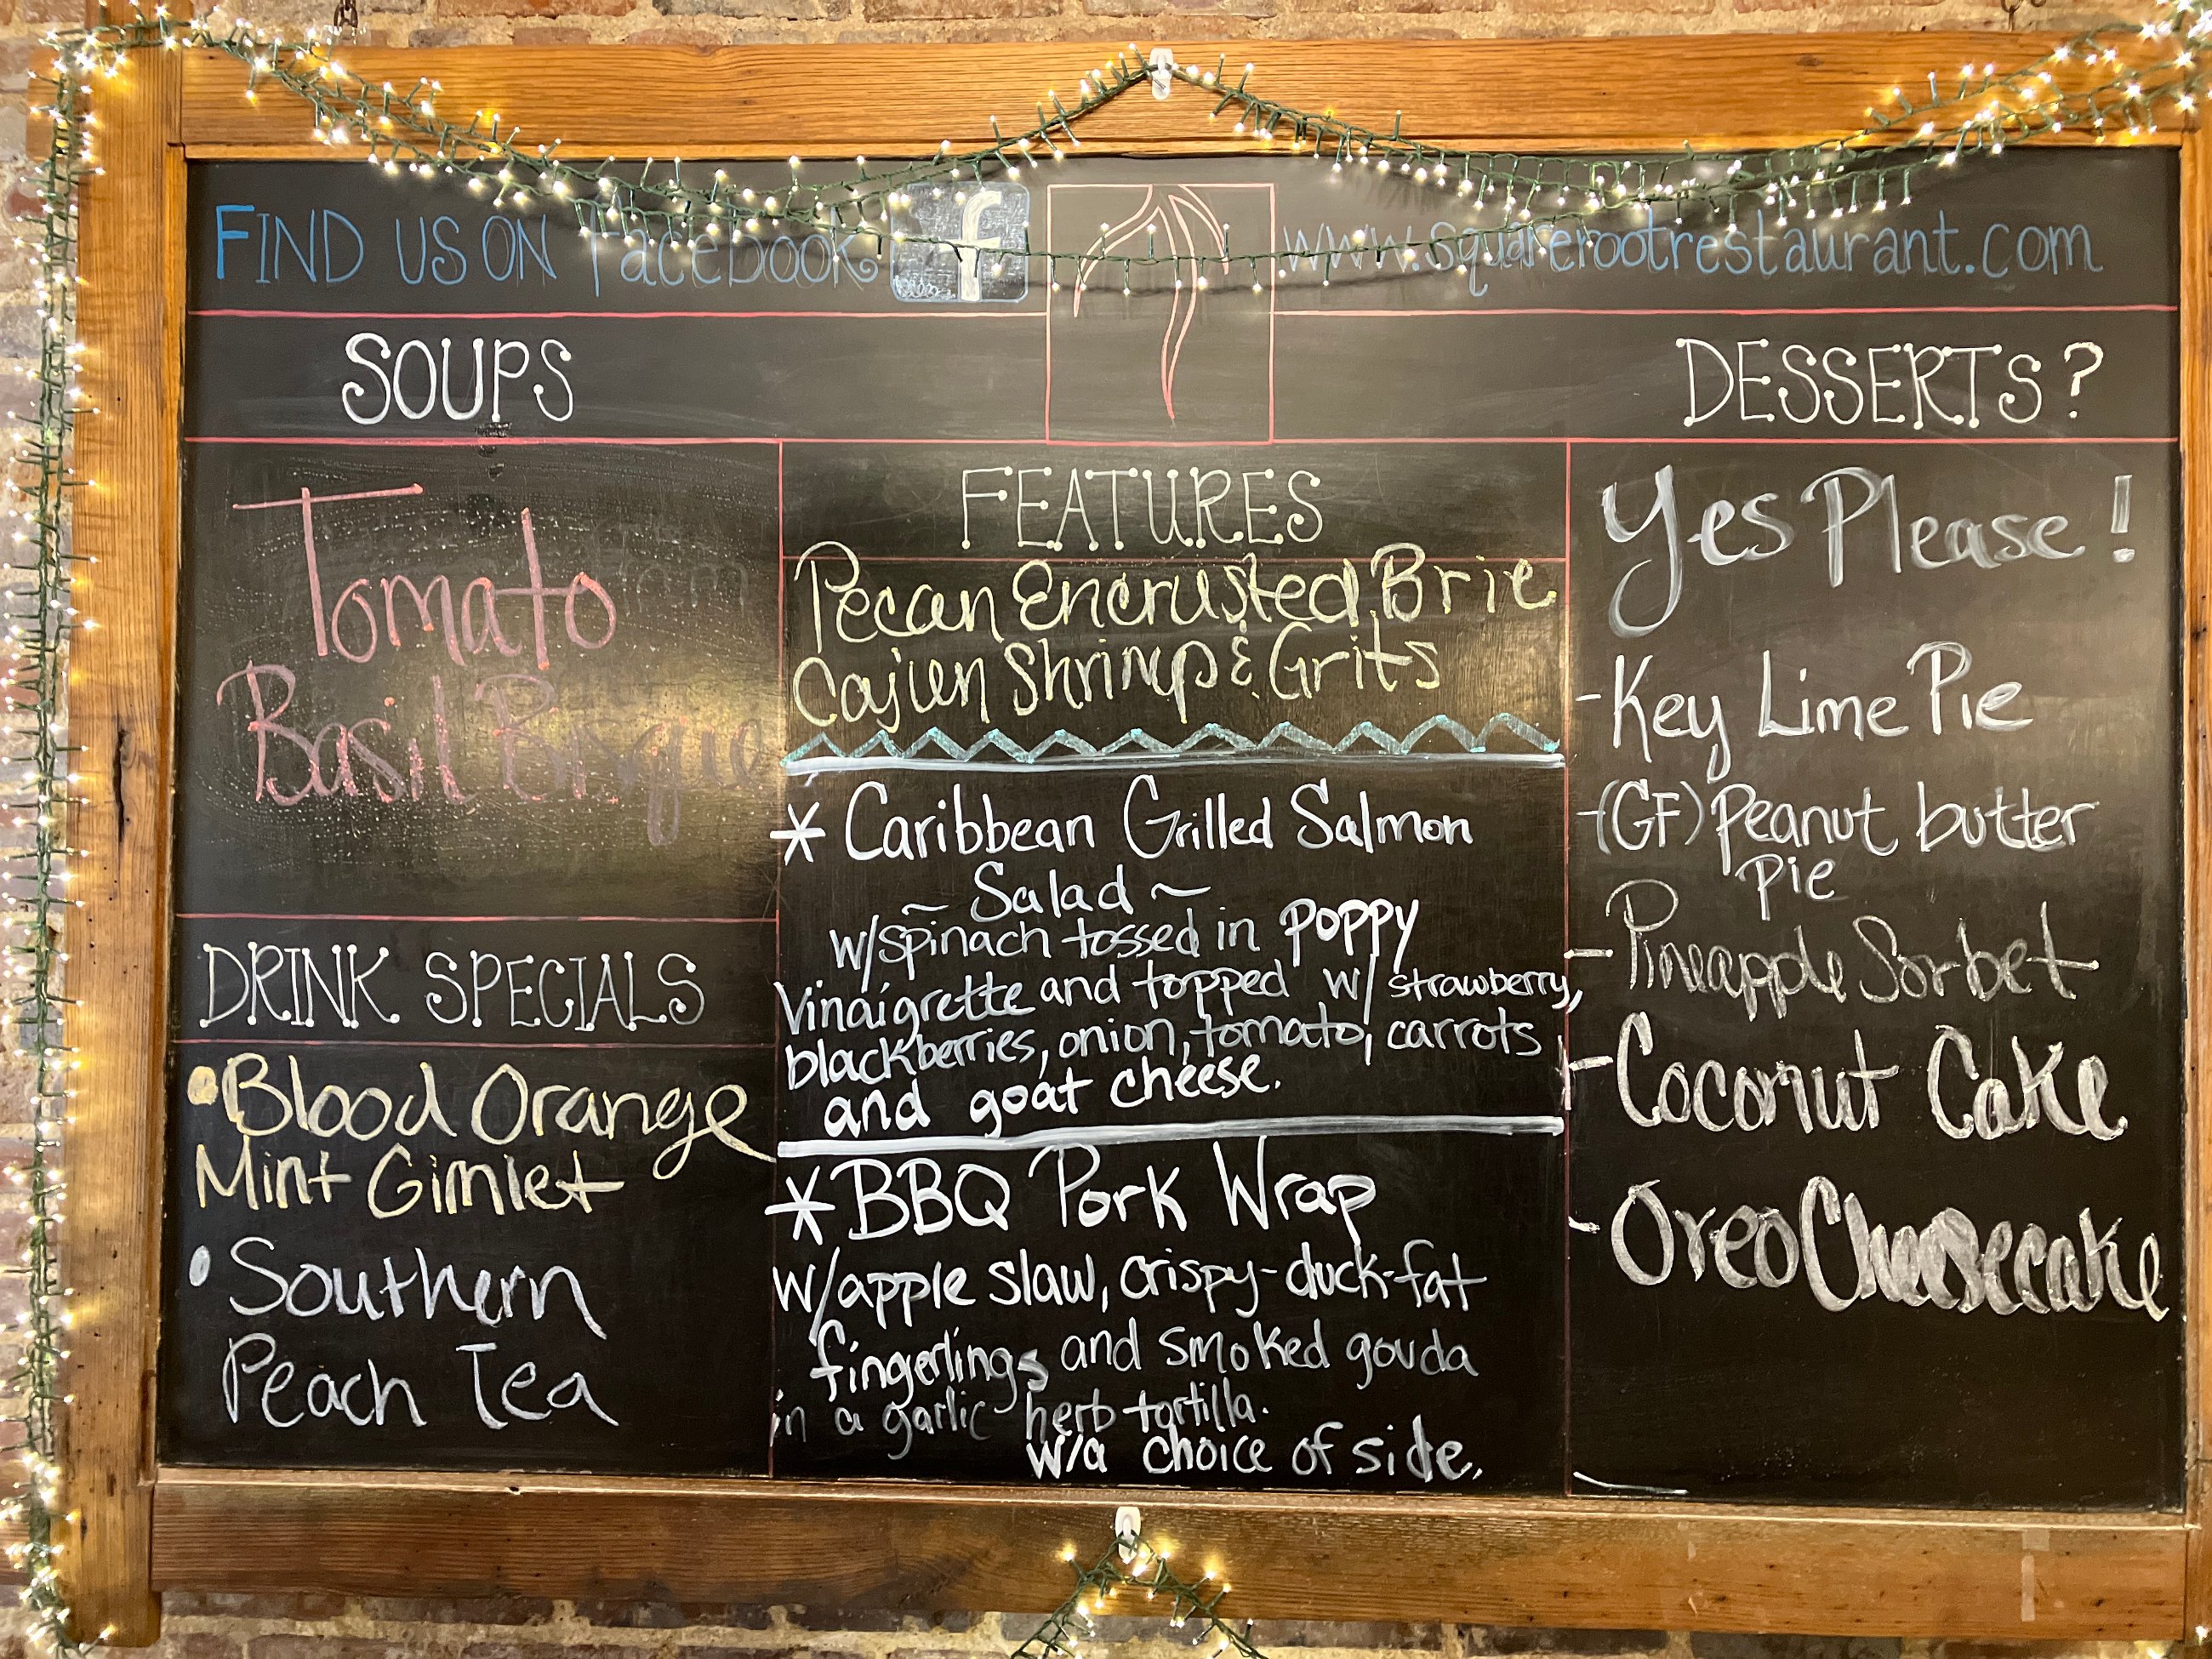 FIND US ON facebook f
www.squarerootrestaurant.com
SOUPS
Tomato
Basil Bisque
DRINK SPECIALS
•Blood Orange
Mint Gimlet
•Southern
Peach Tea
FEATURES
Pecan Encrusted Brie
Cajun Shrimp & Grits
* Caribbean Grilled Salmon
~ Salad ~
w/spinach tossed in poppy
vinaigrette and topped w/ strawberry,
blackberries, onion, tomato, carrots
and goat cheese.
* BBQ Pork Wrap
w/apple slaw, crispy-duck-fat
fingerlings and smoked gouda
in a garlic herb tortilla.
w/a choice of side.
DESSERTS?
Yes Please!
-Key Lime Pie
-(GF) Peanut butter
Pie
-Pineapple Sorbet
-Coconut Cake
-Oreo Cheesecake